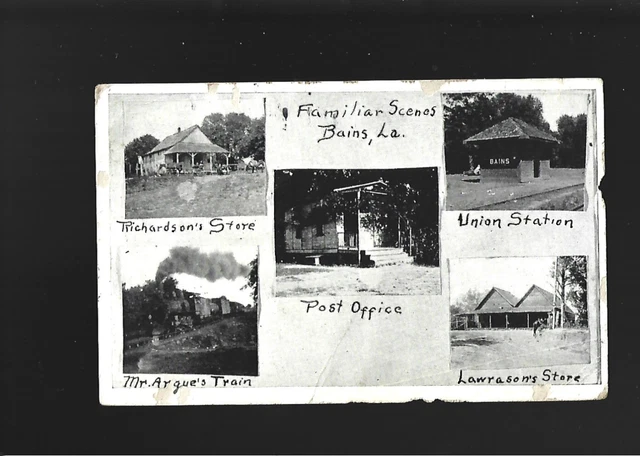 Familiar Scenes
Bains, La.
BAINS
Richardson's Store
Union Station
Post Office
Mr. Argue's Train
Lawrason's Store